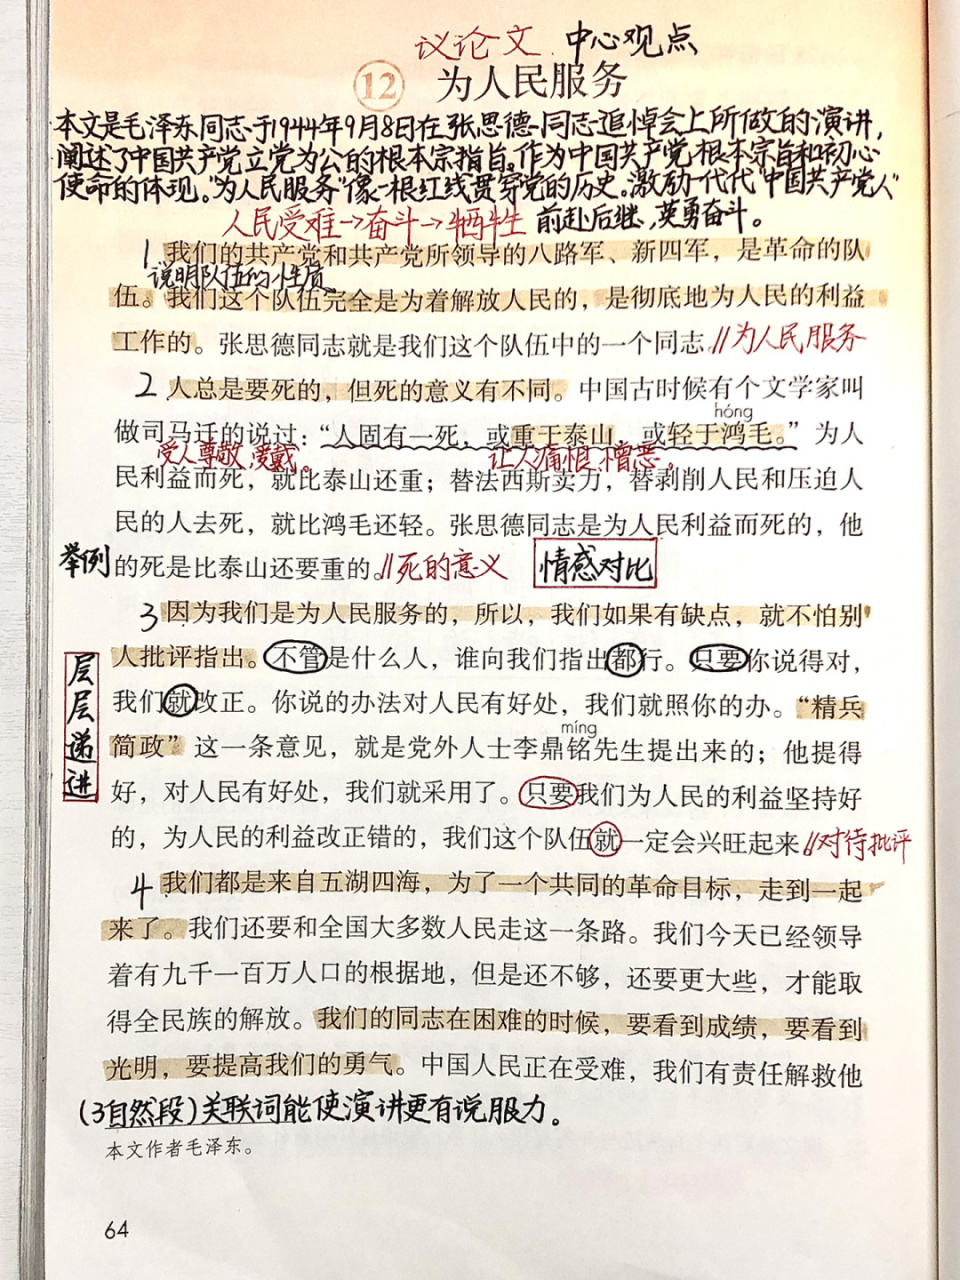 议论文 中心观点
12 为人民服务
本文是毛泽东同志于1944年9月8日在张思德同志追悼会上所做的演讲，
阐述了中国共产党立党为公的根本宗指旨。作为中国共产党根本宗旨和初心
使命的体现。"为人民服务"像一根红线贯穿党的历史。激励一代代"中国共产党人"
人民受难→奋斗→牺牲 前赴后继，英勇奋斗。
1 我们的共产党和共产党所领导的八路军、新四军，是革命的队
说明队伍的性质
伍。我们这个队伍完全是为着解放人民的，是彻底地为人民的利益
工作的。张思德同志就是我们这个队伍中的一个同志。//为人民服务
2 人总是要死的，但死的意义有不同。中国古时候有个文学家叫
hóng
做司马迁的说过：“人固有一死，或重于泰山，或轻于鸿毛。”为人
受人尊敬，爱戴。 让人痛恨、憎恶。
民利益而死，就比泰山还重；替法西斯卖力，替剥削人民和压迫人
民的人去死，就比鸿毛还轻。张思德同志是为人民利益而死的，他
举例 的死是比泰山还要重的。//死的意义 情感对比
3 因为我们是为人民服务的，所以，我们如果有缺点，就不怕别
人批评指出。不管是什么人，谁向我们指出都行。只要你说得对，
层层递进
我们就改正。你说的办法对人民有好处，我们就照你的办。“精兵
míng
简政”这一条意见，就是党外人士李鼎铭先生提出来的；他提得
好，对人民有好处，我们就采用了。只要我们为人民的利益坚持好
的，为人民的利益改正错的，我们这个队伍就一定会兴旺起来。//对待批评
4 我们都是来自五湖四海，为了一个共同的革命目标，走到一起
来了。我们还要和全国大多数人民走这一条路。我们今天已经领导
着有九千一百万人口的根据地，但是还不够，还要更大些，才能取
得全民族的解放。我们的同志在困难的时候，要看到成绩，要看到
光明，要提高我们的勇气。中国人民正在受难，我们有责任解救他
(3自然段)关联词能使演讲更有说服力。
本文作者毛泽东。
64